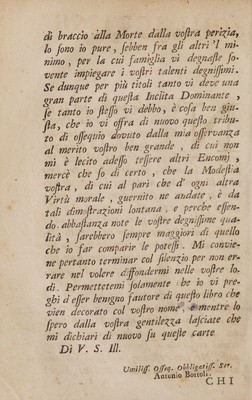 di braccio àlla Morte dalla vostra perizia,
lo sono io pure, sebben fra gli altri 'l mi-
nimo, per la cui famiglia vi degnaste so-
vente impiegare i vostri talenti degnissimi.
Se dunque per più titoli tanto vi deve una
gran parte di questa Inclita Dominante,
se tanto io stesso vi debbo, è cosa ben giu-
sta, che io vi offra di nuovo questo tribu-
to di ossequio dovuto dalla mia osservanza
al merito vostro ben grande, di cui non
mi è lecito adesso tessere altri Encomj,
mercè che so di certo, che la Modestia
vostra, di cui al pari che d' ogni altra
Virtù morale, guernito ne andate, è da
tali dimostrazioni lontana, e perche essen-
do abbastanza note le vostre degnissime qua-
lità, sarebbero sempre maggiori di quello
che io far comparir le potessi. Mi convie-
ne pertanto terminar col silenzio per non er-
rare nel volere diffondermi nelle vostre lo-
di. Permettetemi solamente che io vi pre-
ghi d'esser benigno fautore di questo libro che
vien decorato col vostro nome, e mentre lo
spero dalla vostra gentilezza lasciate che
mi dichiari di nuovo su queste carte
Di V. S. Ill.
Umiliss. Osseq. Obbligatiss. Ser.
Antonio Bortoli.
CHI